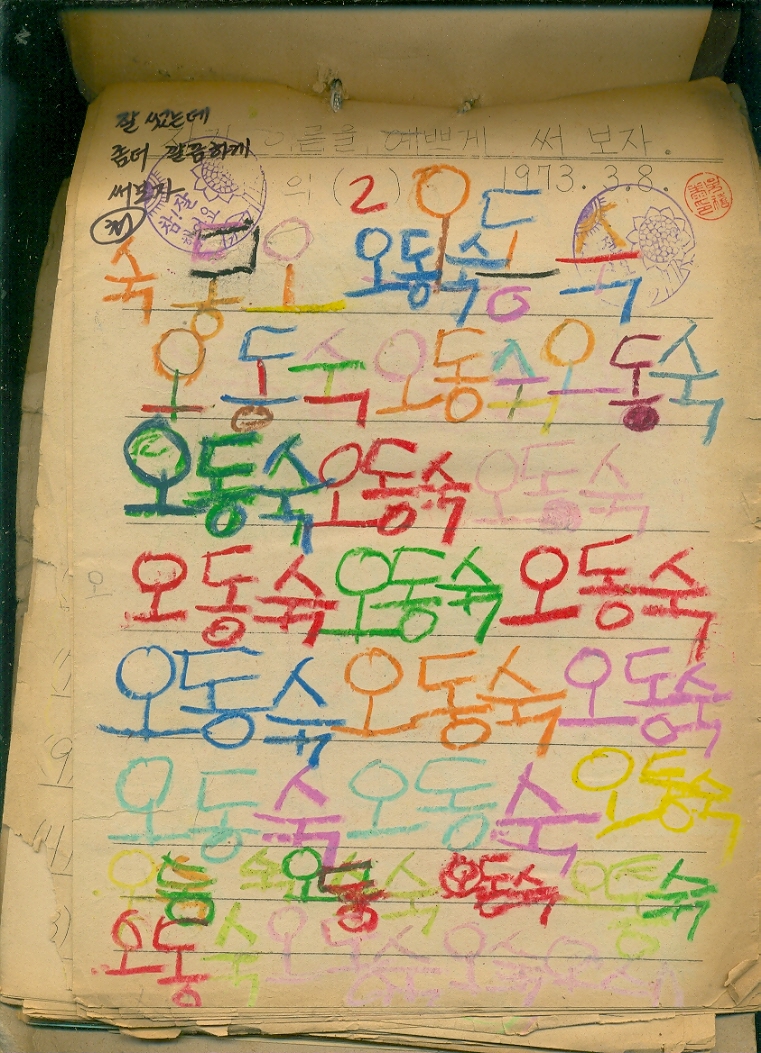 잘 썼는데
좀더 깔끔하게
써보자
이름을 예쁘게 써 보자.
의 (2) 1973. 3. 8.
숙 동 오 오동숙 오 동 숙
오동숙 오동숙 오동숙
오동숙 오동숙 오동숙
오동숙 오동숙 오동숙
오동숙 오동숙 오동숙
오동숙 오동숙 오동숙
오동숙 오동숙 오동숙 오동숙
오동숙 오동숙